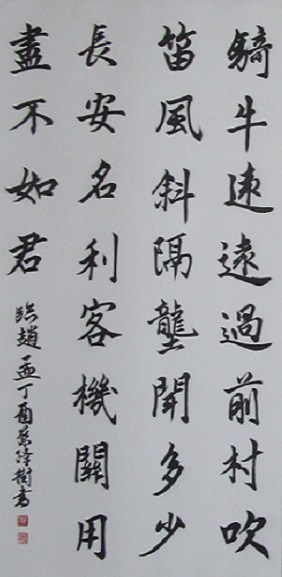 騎牛遠遠過前村吹
笛風斜隔壟聞多少
長安名利客機關用
盡不如君
臨趙孟丁酉
樹書